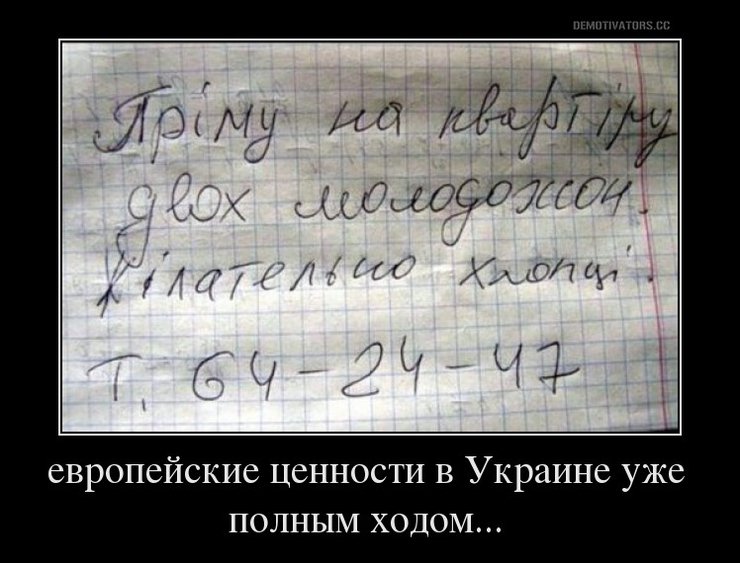 DEMOTIVATORS.CC
Пріму на квартіру
двох молодожон.
Жілательно хлопці.
Т. 64-24-47
европейские ценности в Украине уже
полным ходом...